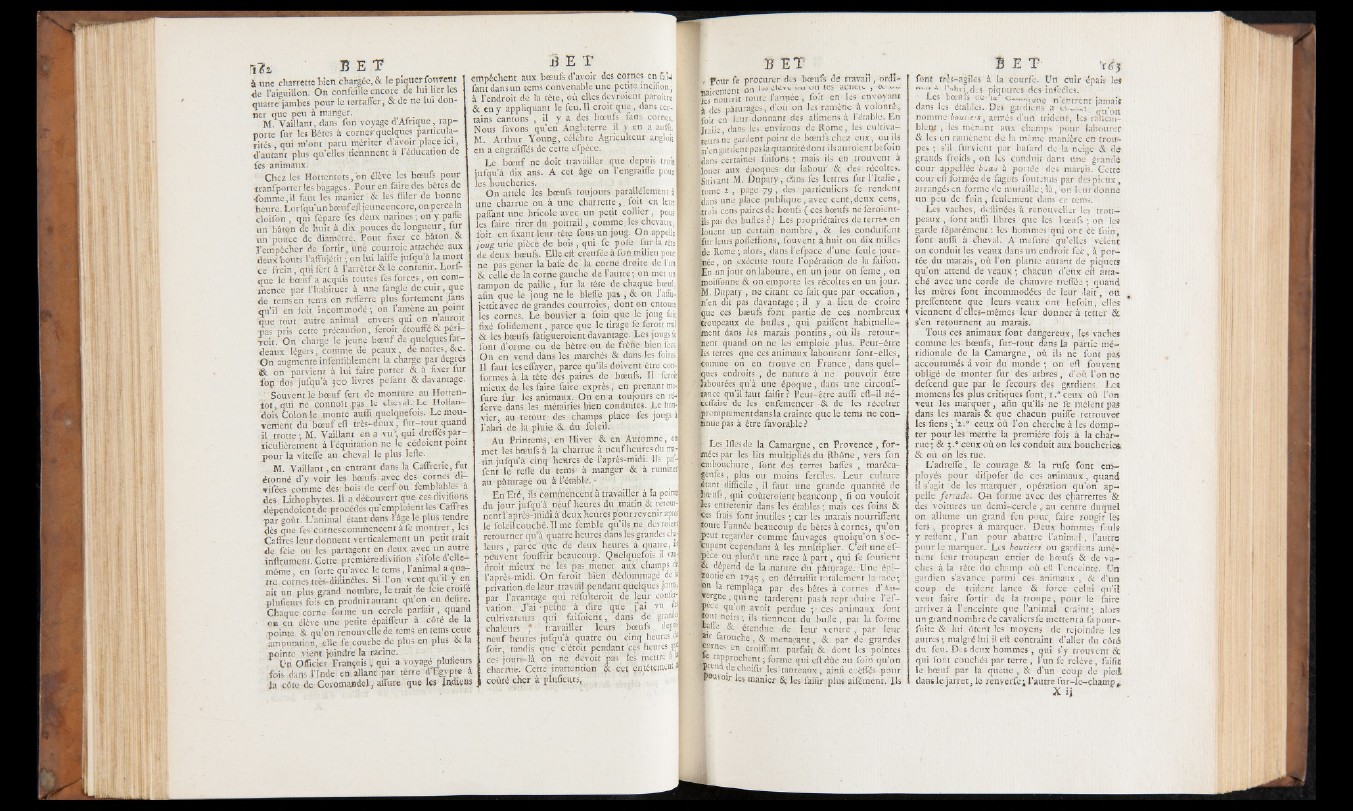 162 BET BET
à une charrette bien chargée, & le piquer souvent
de l'aiguillon. On conseille encore de lui lier les
quatre jambes pour le terrasser, & de ne lui don-
ner que peu à manger.
M. Vaillant, dans son voyage d'Afrique, rap-
porte sur les Bêtes à cornes quelques particula-
rités, qui m'ont paru mériter d'avoir place ici,
d'autant plus qu'elles tiennent à l'éducation de
ses animaux.
Chez les Hottentots, on élève les bœufs pour
transporter les bagages. Pour en faire des bêtes de
somme, il faut les manier & les siller de bonne
heure. Lorsqu'un bœuf est jeune encore, on perce la
cloison, qui sépare ses deux narines; on y passe
un bâton de huit à dix pouces de longueur, sur
un pouce de diamètre. Pour fixer ce bâton &
l'empêcher de sortir, une courroie attachée aux
deux bouts l'assujétit; on lui laisse jusqu'à la mort
ce frein, qui sert à l'arrêter & le contenir. Lors-
que le bœuf a acquis toutes ses forces, on com-
mence par l'habituer à une sangle de cuir, que
de tems en tems on resserre plus fortement sans
qu'il en soit incommodé; on l'amène au point
que tout autre animal envers qui on n'auroit
pas pris cette précaution, seroit étouffé & péri-
roit. On charge le jeune bœuf de quelques far-
deaux légers, comme de peaux, de nattes, &c.
On augmente insensiblement la charge par degrés
& on parvient à lui faire porter & à fixer sur
son dos jusqu'à 300 livres pesant & davantage.
Souvent le bœuf sert de monture au Hotten-
tot, qui ne connoît pas le cheval. Le Hollan-
dois Colon le monte aussi quelquefois. Le mou-
vement du bœuf est très-doux, sur-tout quand
il trotte; M. Vaillant en a vu, qui dressés par-
ticulièrement à l'équitation ne le cédoient point
pour la vitesse au cheval le plus leste.
M. Vaillant, en entrant dans la Caffrerie, fut
étonné d'y voir les bœufs avec des cornes di-
visées comme des bois de cerf ou semblables à
des Lithophytes. Il a découvert que ces divisions
dépendoient de procédés qu'emploient les Caffres
par goût. L'animal étant dans l'âge le plus tendre
dès que ses cornes commencent à se montrer, les
Caffres leur donnent verticalement un petit trait
de scie ou les partagent en deux avec un autre
instrument. Cette première division s'isole d'elle-
même, en sorte qu'avec le tems, l'animal a qua-
tre cornes très-distinctes. Si l'on veut qu'il y en
ait un plus grand nombre, le trait de scie croisé
plusieurs fois en produit autant qu'on en desire.
Chaque corne forme un cercle parfait, quand
on en élève une petite épaisseur à côté de la
pointe & qu'on renouvelle de tems en tems cette
amputation, elle se couche de plus en plus & la
pointe vient joindre la racine.
Un Officier François, qui a voyagé plusieurs
fois dans l'Inde en allant par terre d'Egypte à
la côte de Coromandel, assure que les Indiens
empêchent aux bœufs d'avoir des cornes en fai-
sant dans un tems convenable une petite incision,
à l'endroit de la tête, où elles devroient paroître
& en y appliquant le feu. Il croit que, dans cer-
tains cantons, il y a des bœufs sans cornes.
Nous savons qu'en Angleterre il y en a aussi.
M. Arthur Young, célèbre Agriculteur anglois
en a engraissés de cette espèce.
Le bœuf ne doit travailler que depuis trois
jusqu'à dix ans. A cet âge on l'engraisse pour
les boucheries.
On attèle les bœufs toujours parallèlement à
une charrue ou à une charrette, soit en leur
passant une bricole avec un petit collier, pour
les faire tirer du poitrail, comme les chevaux,
soit en fixant leur tête sous un joug. On appelle
joug une pièce de bois, qui se pose sur la tête
de deux bœufs. Elle est creusée à son milieu pour
ne pas gêner la base de la corne droite de l'un
& celle de la corne gauche de l'autre; on met un
tampon de paille, sur la tête de chaque bœuf,
afin que le joug ne le blesse pas, & on l'assu-
jettit avec de grandes courroies, dont on entoure
les cornes. Le bouvier a soin que le joug soit
fixé solidement, parce que le tirage se feroit mal
& les bœufs fatigueroient davantage. Les jougs se
font d'orme ou de hêtre ou de frêne bien secs.
On en vend dans les marchés & dans les foires.
Il faut les essayer, parce qu'ils doivent être con-
formés à la tête des paires de bœufs. Il seroit
mieux de les faire faire exprès, en prenant me-
sure sur les animaux. On en a toujours en ré-
serve dans les métairies bien conduites. Le bou-
vier, au retour des champs place ses jougs à
l'abri de la pluie & du soleil.
Au Printems, en Hiver & en Automne, on
met les bœufs à la charrue à neuf heures du ma-
tin jusqu'à cinq heures de l'après-midi. Ils pas-
sent le reste du tems à manger & à ruminer
au pâturage ou à l'étable.
En Eté, ils commencent à travailler à la pointe
du jour jusqu'à neuf heures du matin & retour-
nent l'après-midi à deux heures pour revenir après
le soleil couché. Il me semble qu'ils ne devroient
retourner qu'à quatre heures dans les grandes cha-
leurs, parce que de deux heures à quatre, ils
peuvent souffrir beaucoup. Quelquefois il vau-
droit mieux ne les pas mener aux champs de
l'après-midi. On seroit bien dédommagé de la
privation de leur travail pendant quelques jours,
par l'avantage qui résulteroit de leur conser-
vation. J'ai peine à dire que j'ai vu des
cultivateurs qui faisoient, dans de grandes
chaleurs, travailler leurs bœufs depuis
neuf heures jusqu'à quatre ou cinq heures du
soir, tandis que c'étoit pendant ces heures que
ces jours-là on ne devoit pas les mettre à la
charrue. Cette inattention & cet entêtement a
coûté cher à plusieurs.
BET BET 163
Pour se procurer des bœufs de travail, ordi-
nairement on les élève ou on les achète, &
les nourrit toute l'année, soit en les envoyant
à des pâturages, d'où on les ramène à volonté,
soit en leur donnant des alimens à l'étable. En
Italie, dans les environs de Rome, les cultiva-
teurs ne gardent point de bœufs chez eux, ou ils
n'en gardent pas la quantité dont ils auroient besoin
dans certaines saisons; mais ils en trouvent à
louer aux époques du labour & des récoltes.
Suivant M. Dupaty, dans ses lettres sur l'Italie,
tome 2, page 79, des particuliers se rendent
dans une place publique, avec cent, deux cens,
trois cens paires de bœufs (ces bœufs ne seroient-
ils pas des bufles?) Les propriétaires de terres en
louent un certain nombre, & les conduisent
sur leurs possessions, souvent à huit ou dix milles
de Rome; alors, dans l'espace d'une seule jour-
née, on exécute toute l'opération de la saison.
En un jour on laboure, en un jour on seme, on
moissonne & on emporte les récoltes en un jour.
M. Dupaty, ne citant ce fait que par occasion,
n'en dit pas davantage; il y a lieu de croire
que ces bœufs font partie de ces nombreux
troupeaux de bufles, qui paissent habituelle-
ment dans les marais pontins, où ils retour-
nent quand on ne les emploie plus. Peut-être
les terres que ces animaux labourent sont-elles,
comme on en trouve en France, dans quel-
ques endroits, de nature à ne pouvoir être
labourées qu'à une époque, dans une circons-
tance qu'il faut saisir? Peut-être aussi est-il né-
cessaire de les ensemencer & de les récolter
promptement dans la crainte que le tems ne con-
tinue pas à être favorable?
Les Isles de la Camargue, en Provence, for-
mées par les lits multipliés du Rhône, vers son
embouchure, sont des terres basses, maréca-
geuses, plus ou moins fertiles. Leur culture
étant difficile, il faut une grande quantité de
bœufs, qui coûteroient beaucoup, si on vouloit
les entretenir dans les étables; mais ces soins &
ces frais sont inutiles; car les marais nourrissent
toute l'année beaucoup de bêtes à cornes, qu'on
peut regarder comme sauvages quoiqu'on s'oc-
cupent cependant à les multiplier. C'est une es-
pèce ou plutôt une race à part, qui se soutient
& dépend de la nature du pâturage. Une épi-
zootie en 1745, en détruisit totalement la race;
on la remplaça par des bêtes à cornes d'Au-
vergne, qui ne tardèrent pas à reproduire l'es-
pèce qu'on avoit perdue; ces animaux sont
tout noirs; ils tiennent du bufle, par la forme
basse & étendue de leur ventre, par leur
air farouche, & menaçant, & par de grandes
cornes en croissant parfait & dont les pointes
se rapprochent; forme qui est dûe au soin qu'on
prend de choisir les taureaux, ainsi coëffés pour
pouvoir les manier & les saisir plus aisément. Ils
sont très-agiles à la course. Un cuir épais les
met à l'abri des piquures des insectes.
Les bœufs de la Camargue n'entrent jamais
dans les étables. Des gardiens à cheval qu'on
nomme bouviers, armés d'un trident, les rassem-
blent, les mènent aux champs pour labourer
& les en ramènent de la même manière en trou-
pes; s'il survient par hasard de la neige & de
grands froids, on les conduit dans une grande
cour appellée buau à portée des marais. Cette
cour est formée de fagots soutenus par des pieux,
arrangés en forme de muraille; là, on leur donne
un peu de foin, seulement dans ce tems.
Les vaches, destinées à renouveller les trou-
peaux, sont aussi libres que les bœufs; on les
garde séparément: les hommes qui ont ce soin,
sont aussi à cheval. A mesure qu'elles vêlent
on conduit les veaux dans un endroit sec, à por-
tée du marais, où l'on plante autant de piquets
qu'on attend de veaux; chacun d'eux est atta-
ché avec une corde de chanvre tressée; quand
les mères sont incommodées de leur lait, ou
pressentent que leurs veaux ont besoin, elles
viennent d'elles-mêmes leur donner à tetter &
s'en retournent au marais.
Tous ces animaux sont dangereux, les vaches
comme les bœufs, sur-tout dans la partie mé-
ridionale de la Camargue, où ils ne sont pas
accoutumés à voir du monde; on est souvent
obligé de monter sur des arbres, d'où l'on ne
descend que par le secours des gardiens. Les
momens les plus critiques sont, 1.° ceux où l'on
veut les marquer, afin qu'ils ne se mêlent pas
dans les marais & que chacun puisse retrouver
les siens; 2.° ceux où l'on cherche à les domp-
ter pour les mettre la première fois à la char-
rue; & 3.° ceux où on les conduit aux boucheries
& où on les tue.
L'adresse, le courage & la ruse sont em-
ployés pour disposer de ces animaux, quand
il s'agit de les marquer, opération qu'on ap-
pelle ferrade. On forme avec des charrettes &
des voitures un demi-cercle, au centre duquel
on allume un grand feu pour faire rougir les
fers, propres à marquer. Deux hommes seuls
y restent, l'un pour abattre l'animal, l'autre
pour le marquer. Les bouviers ou gardiens amè-
nent leur troupeau entier de bœufs & de va-
ches à la tête du champ où est l'enceinte. Un
gardien s'avance parmi ces animaux, & d'un
coup de trident lance & force celui qu'il
veut faire sortir de la troupe, pour le faire
arriver à l'enceinte que l'animal craint; alors
un grand nombre de cavaliers se mettent à sa pour-
suite & lui ôtent les moyens de rejoindre les
autres; malgré lui il est contraint d'aller du côté
du feu. Des deux hommes, qui s'y trouvent &
qui sont couchés par terre, l'un se relève, saisit
le bœuf par la queue, & d'un coup de pied
dans le jarret, le renverse; l'autre sur-le-champ,
X ij